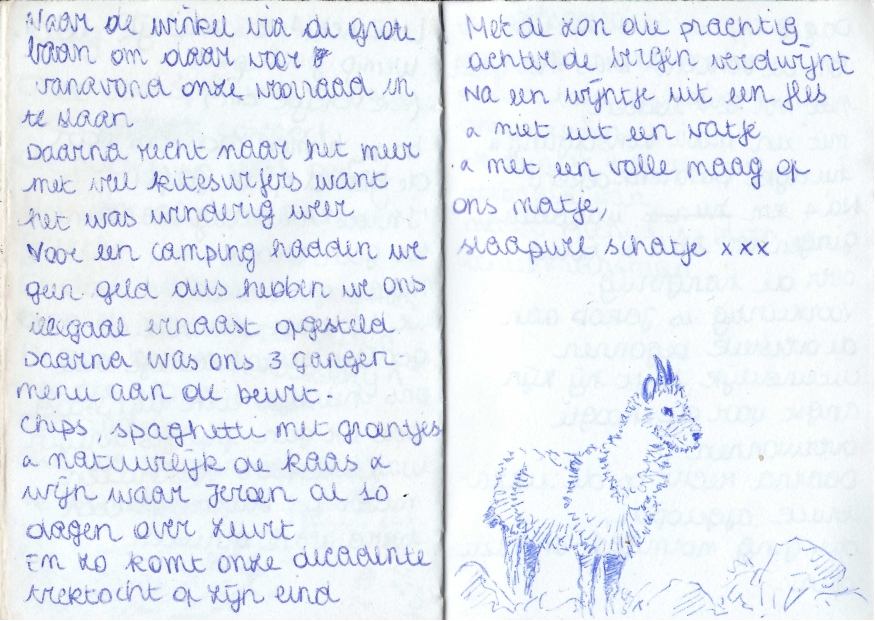 Naar de winkel via de grote
baan om daar voor
vanavond onze voorraad in
te slaan
Daarna recht naar het meer
met vele kitesurfers want
het was winderig weer
Voor een camping hadden we
geen geld dus hebben we ons
illegaal ernaast opgesteld
Daarna was ons 3 gangen-
menu aan de beurt.
Chips, spaghetti met groentjes
& natuurlijk de kaas &
wijn waar Jeroen al 10
dagen over zeurt
En zo komt onze decadente
trektocht op zijn eind
Met de zon die prachtig
achter de bergen verdwijnt
Na een wijntje uit een fles
& niet uit een vatje
& met een volle maag op
ons matje
slaapwel schatje xxx